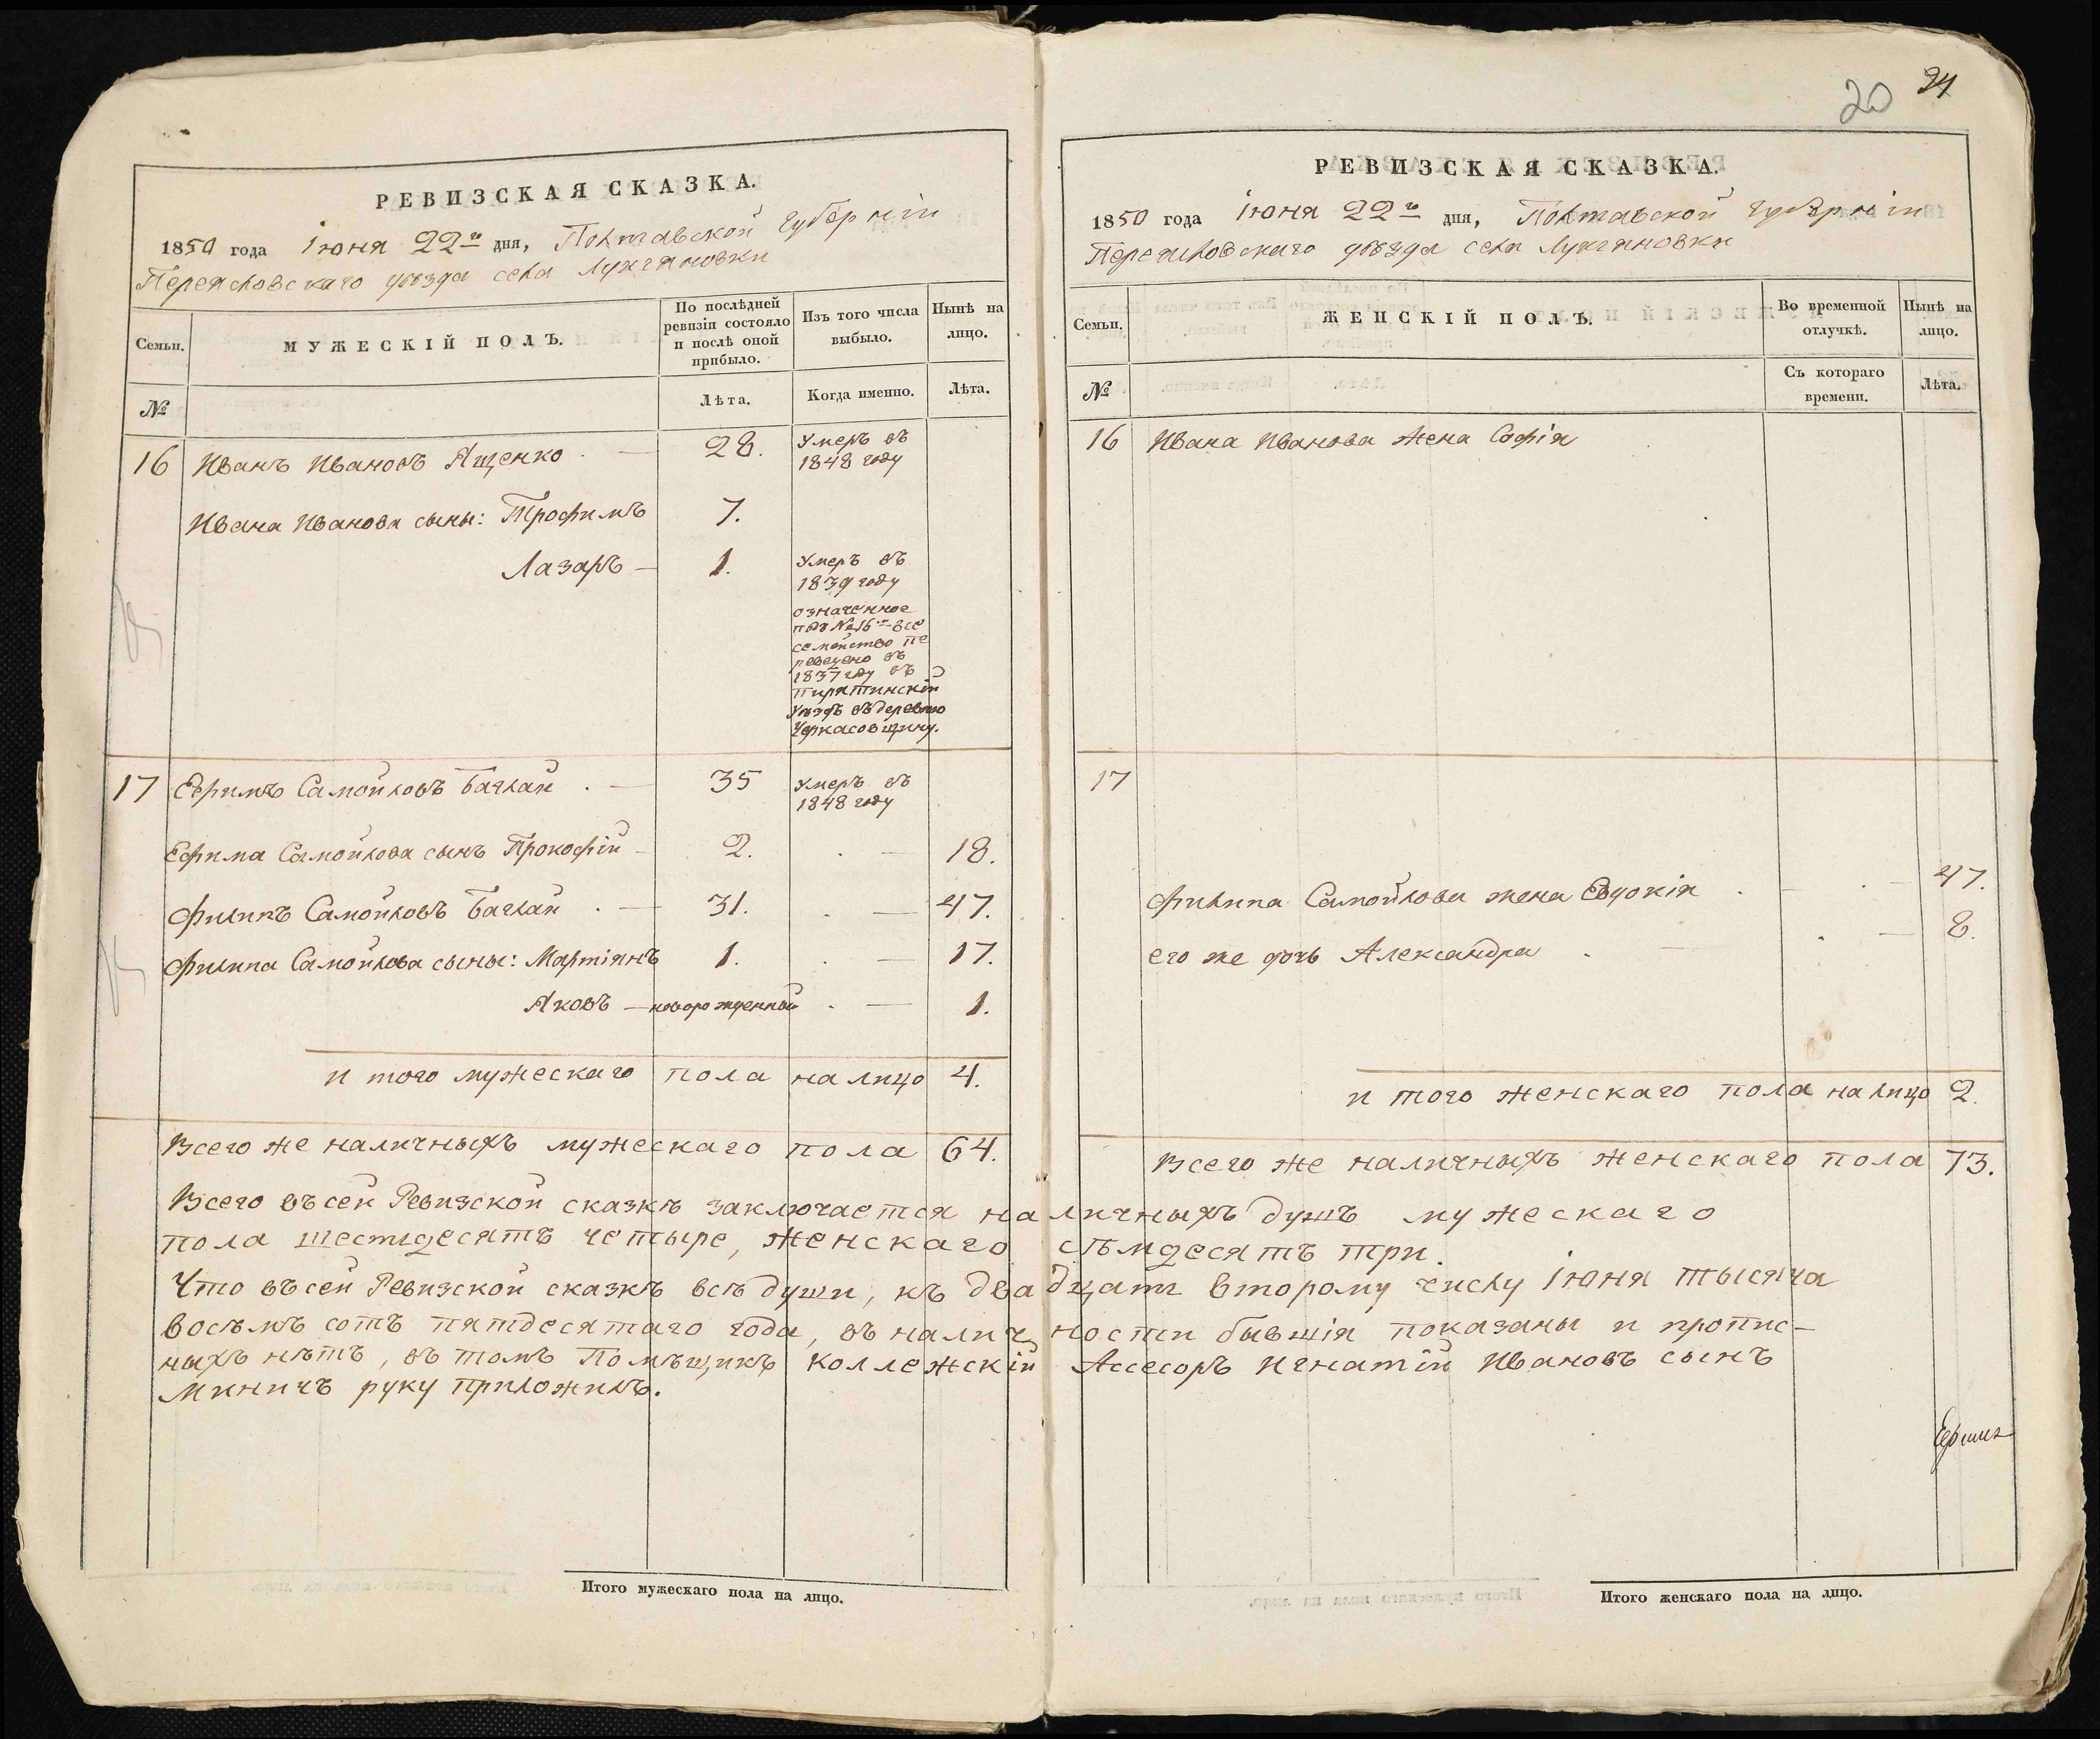 20 24
РЕВИЗСКАЯ СКАЗКА.
1850 года Іюня 22го дня, Полтавской губерніи
Переясловскаго уѣзда села Лукьяновки
Семьи.
МУЖЕСКІЙ ПОЛЪ.
По послѣдней ревизіи состояло и послѣ оной прибыло.
Изъ того числа выбыло.
Нынѣ на лицо.
№
Лѣта.
Когда именно.
Лѣта.
16 Иванъ Ивановъ Ященко 28. Умеръ въ
1848 году
Ивана Иванова сыны: Трофимъ 7.
Лазарь 1. Умеръ въ
1839 году
означенное
подъ №16м все
семейство пе
реведено въ
1837 году въ
Пирятинскій
Уѣздъ въ деревню
Черкасовщину.
17 Ефимъ Самойловъ Баглай 35 Умеръ въ
1848 году
Ефима Самойлова сынъ Прокофій 2. 18.
Филипъ Самойловъ Баглай 31. 47.
Филипа Самойлова сыны: Мартіянъ 1. 17.
Яковъ новорожденной 1.
и того мужескаго пола на лицо 4.
Всего же наличныхъ мужескаго пола 64.
РЕВИЗСКАЯ СКАЗКА.
1850 года Іюня 22го дня, Полтавской губерніи
Переясловскаго уѣзда села Лукьяновки
Семьи.
ЖЕНСКІЙ ПОЛЪ.
Во временной отлучкѣ.
Нынѣ на лицо.
№
Съ котораго времени.
Лѣта.
16 Ивана Иванова жена Софія
17
Филипа Самойлова жена Евдокія 47.
его же дочь Александра 8.
и того женскаго пола на лицо 2.
Всего же наличныхъ женскаго пола 73.
Всего въ сей Ревизской сказкѣ заключается наличныхъ душъ мужескаго
пола шестдесятъ четыре, женскаго сѣмдесятъ три.
Что въ сей Ревизской сказкѣ всѣ души, къ двадцать второму числу Іюня тысяча
восѣмъ сотъ пятдесятаго года, въ наличности бывшія показаны и пропис-
ныхъ нѣтъ, въ томъ Помѣщикъ Коллежскій Ассесоръ Игнатій Ивановъ сынъ
Миничъ руку приложилъ.
Итого мужескаго пола на лицо.
Итого женскаго пола на лицо.